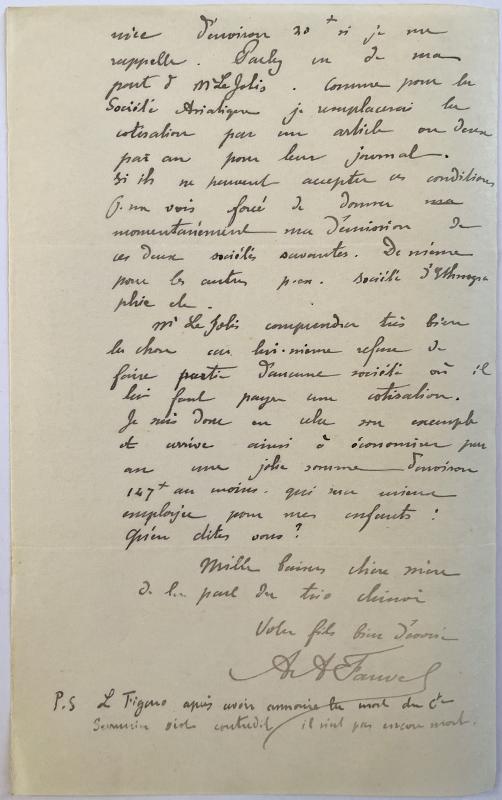 nice d'environ 30 + si je me
rappelle. Parlez en de ma
part à Mr Le Jolis. Comme pour la
Société Asiatique je remplacerai la
cotisation par un article ou deux
par an pour leur journal.
Si ils ne peuvent accepter ces conditions
je me vois forcé de donner
momentanément ma démission de
ces deux sociétés savantes. De même
pour les autres p. ex. société d'Ethnogra
phie etc.
Mr Le Jolis comprendra très bien
la chose car lui-même refuse de
faire partie d'aucune société où il
lui faut payer une cotisation.
Je suis donc en cela son exemple
et arrive ainsi à économiser par
an une jolie somme d'environ
147 + au moins. qui sera mieux
employée pour mes enfants!
Qu'en dites vous?
Mille baisers chère mère
de la part du trio chinois
Votre fils bien dévoué
A. A. Fauvel
P.S Le Figaro après avoir annoncé la mort du Cte
s'est contredit il n'est pas encore mort.